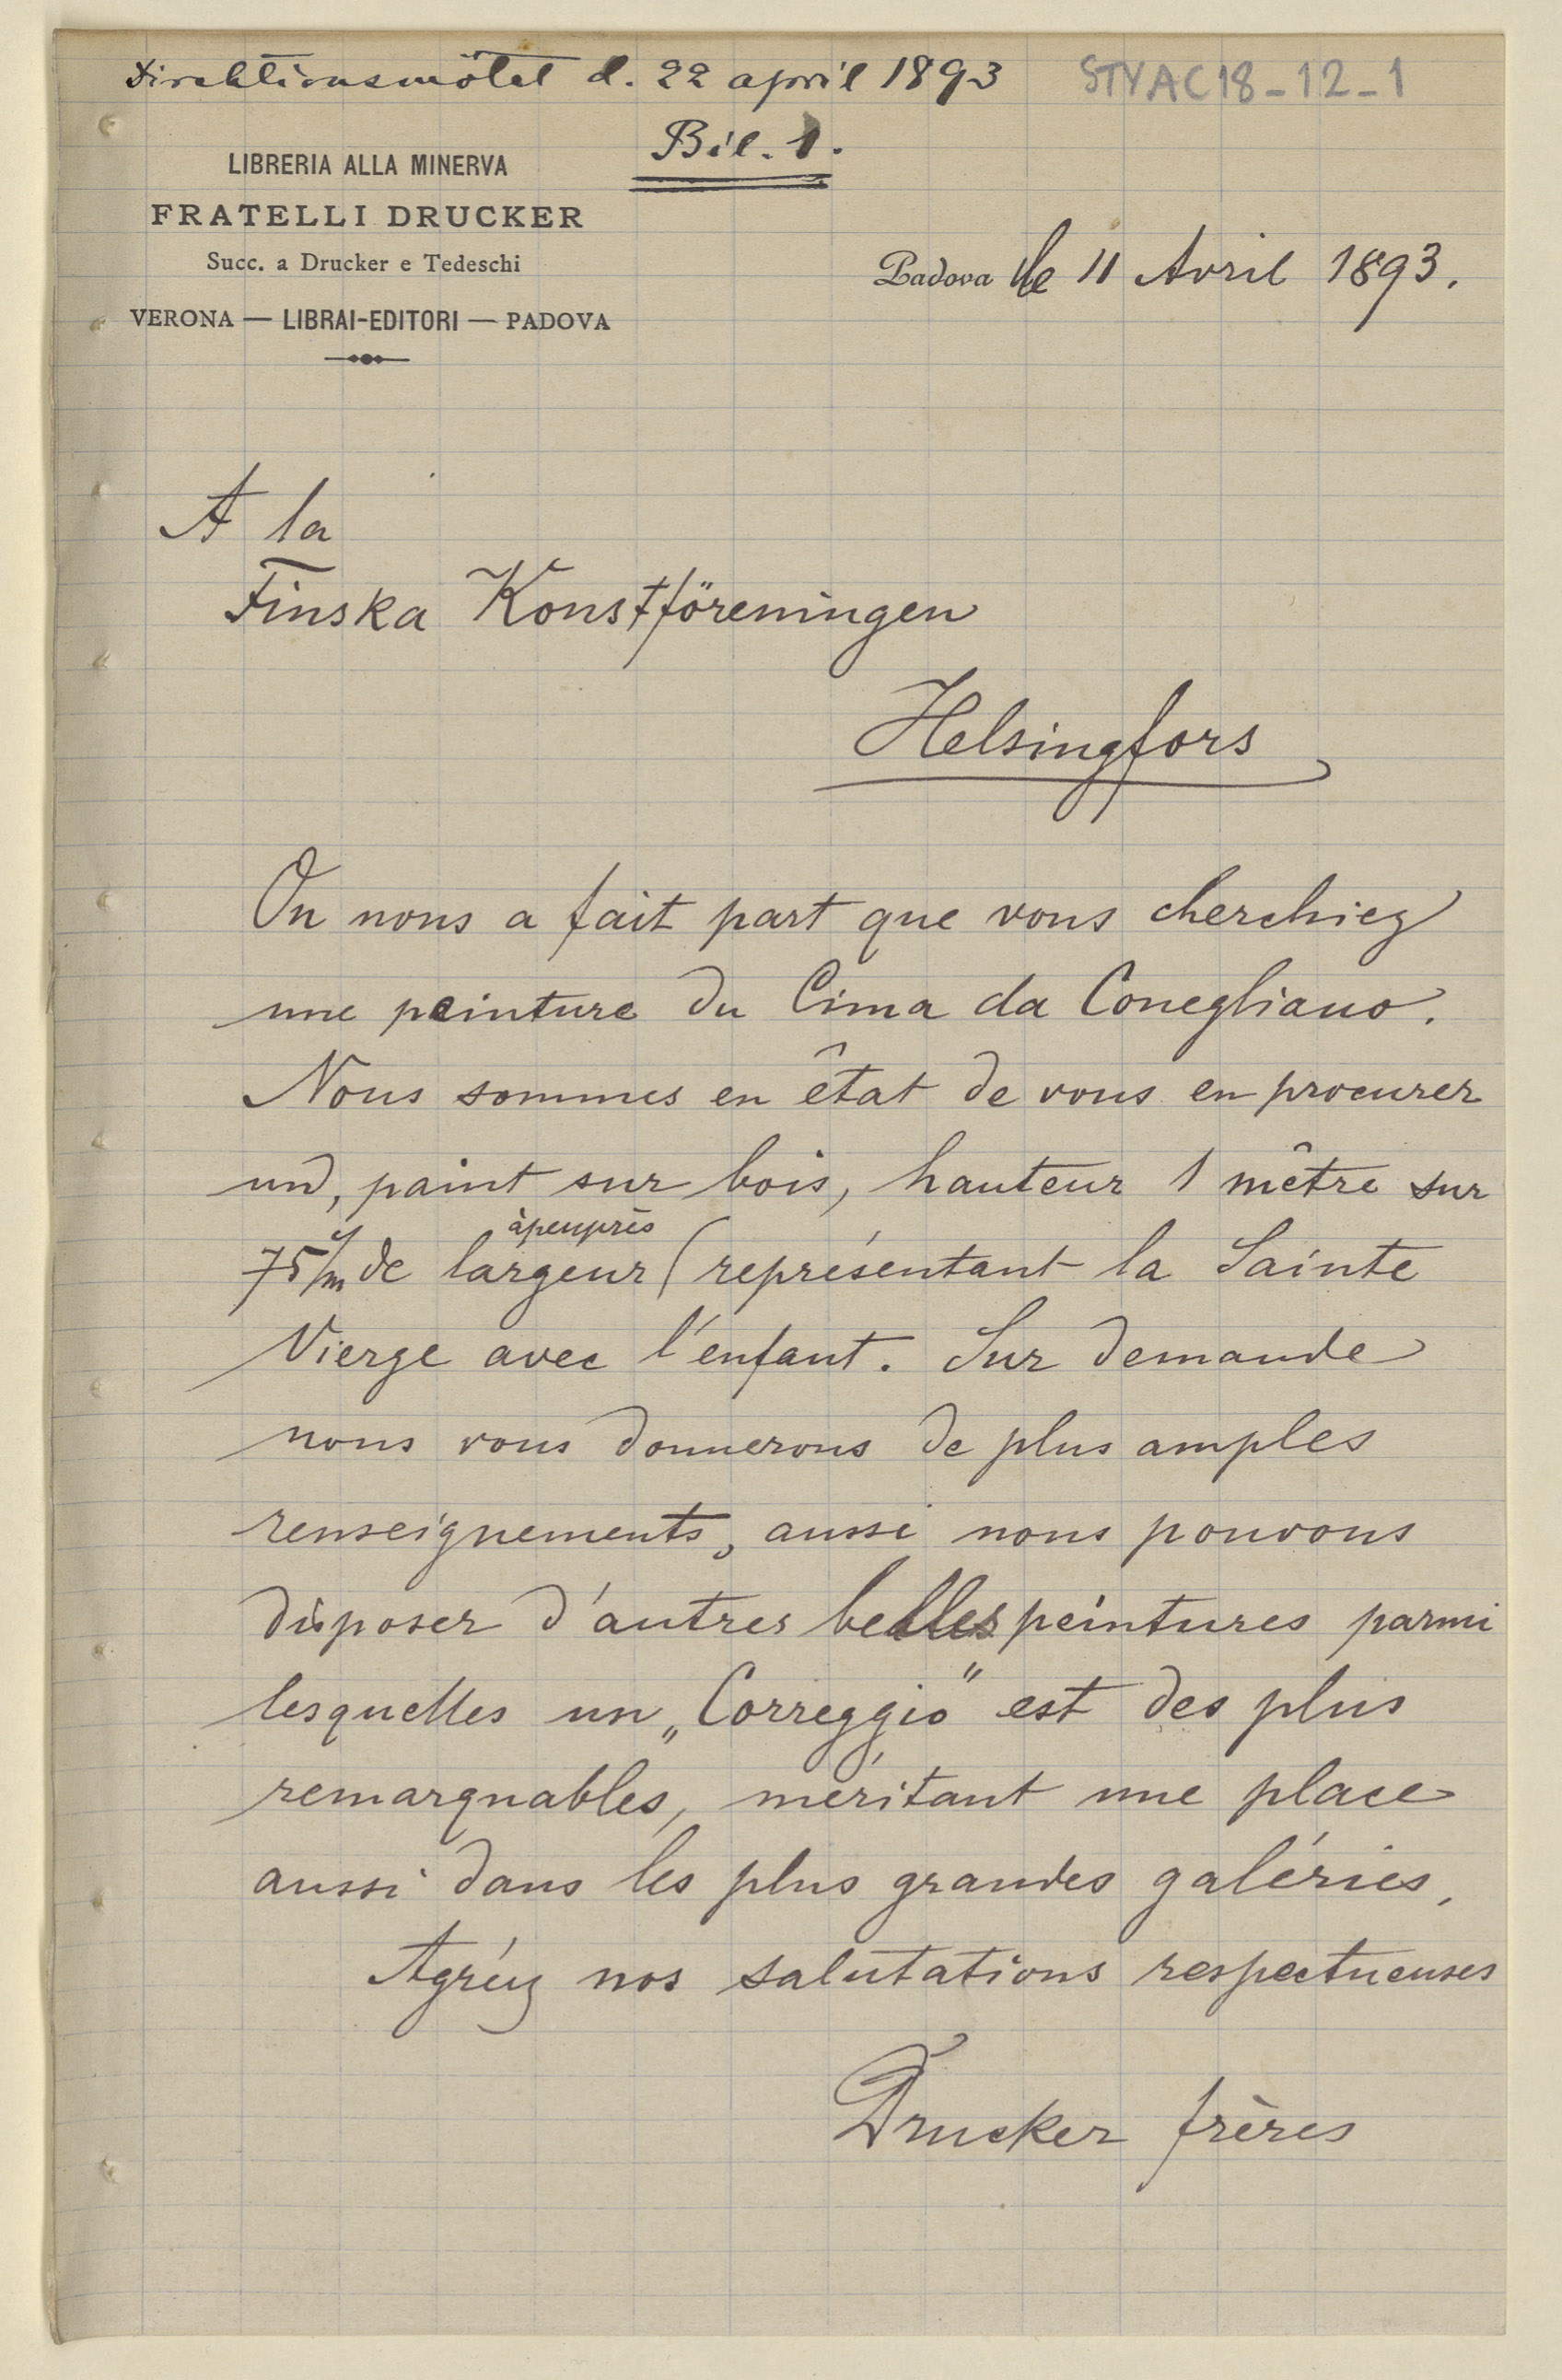 Direktionsmötet d. 22 april 1893 STYAC18-12-1
Bil. 1.
LIBRERIA ALLA MINERVA
FRATELLI DRUCKER
Succ. a Drucker e Tedeschi
VERONA — LIBRAI-EDITORI — PADOVA
Padova le 11 Avril 1893.
A la
Finska Konstföreningen
Helsingfors
On nous a fait part que vous cherchiez
une peinture du Cima da Conegliano.
Nous sommes en êtat de vous en procurer
un, paint sur bois, hauteur 1 mêtre sur
àpeuprès
75 c/m de largeur (représentant la Sainte
Vierge avec l'enfant. Sur demande
nous vous donnerons de plus amples
renseignements, aussi nous pouvons
disposer d'autres belles peintures parmi
lesquelles un „Correggio" est des plus
remarquables, méritant une place
aussi dans les plus grandes galéries.
Agréez nos salutations respectueuses
Drucker frères